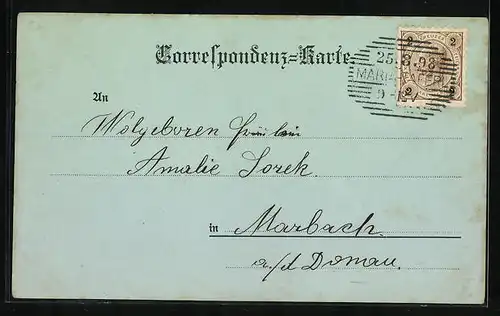 Correspondenz=Karte
An
Wolgeboren Fräulein
Amalie Sorek.
in Marbach
a/d Donau.
25.8.98
MARIA
9 -
2 2
2 2